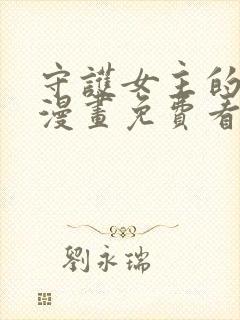 守護女主的
漫畫免費看
劉永瑞